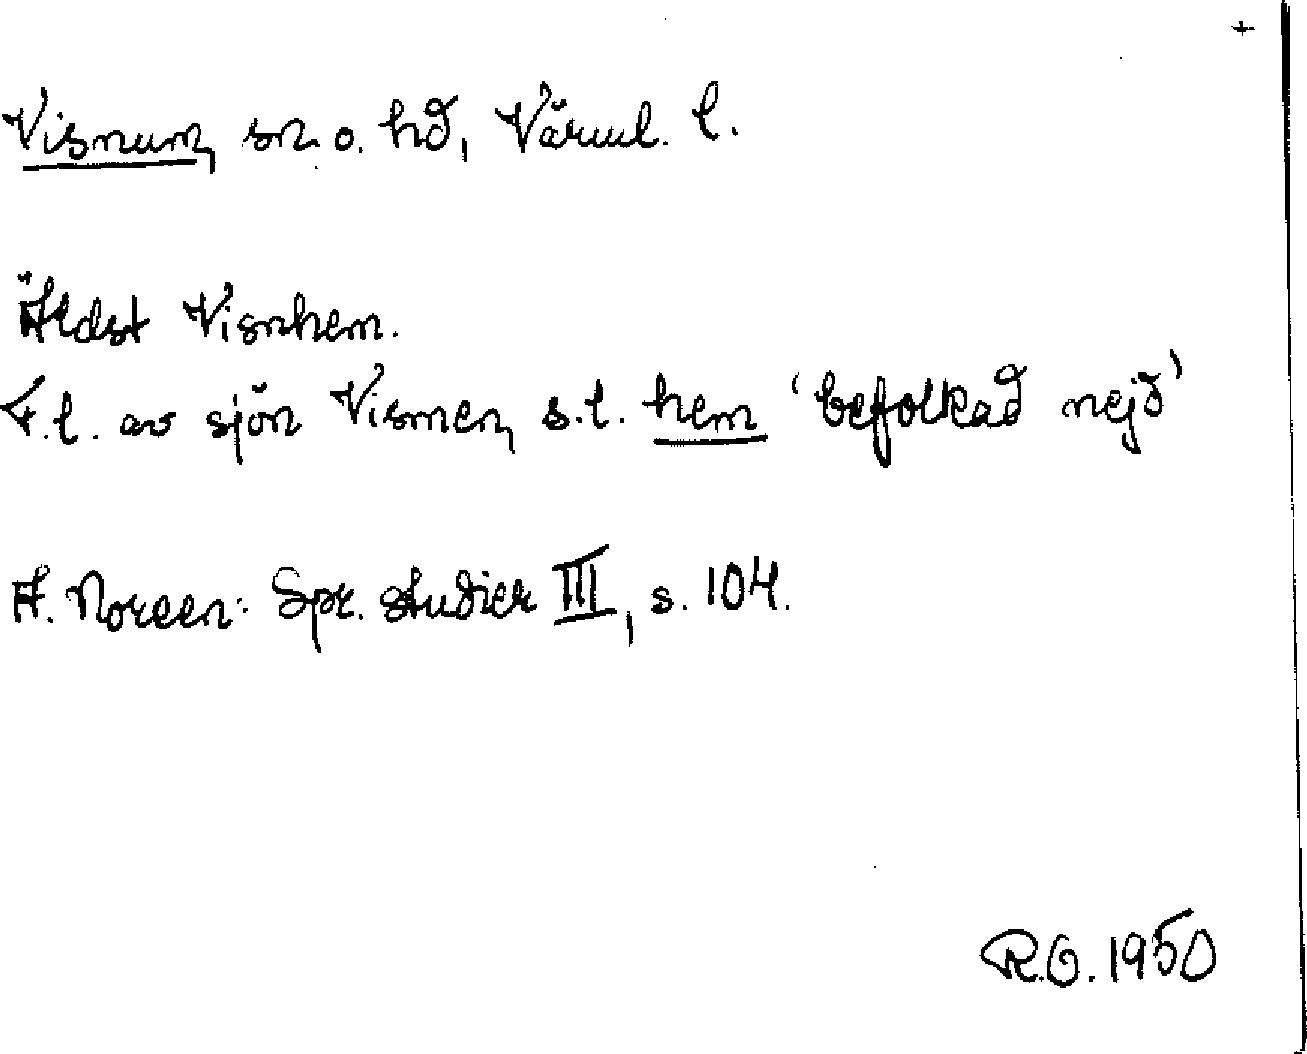 +
Visnum, sn. o. hd, Värml. l.
Äldst Visnhem.
F.l. av sjön Vismen, s.l. hem 'befolkad nejd'
A. Noreen: Spr. studier III, s. 104.
R.O. 1950